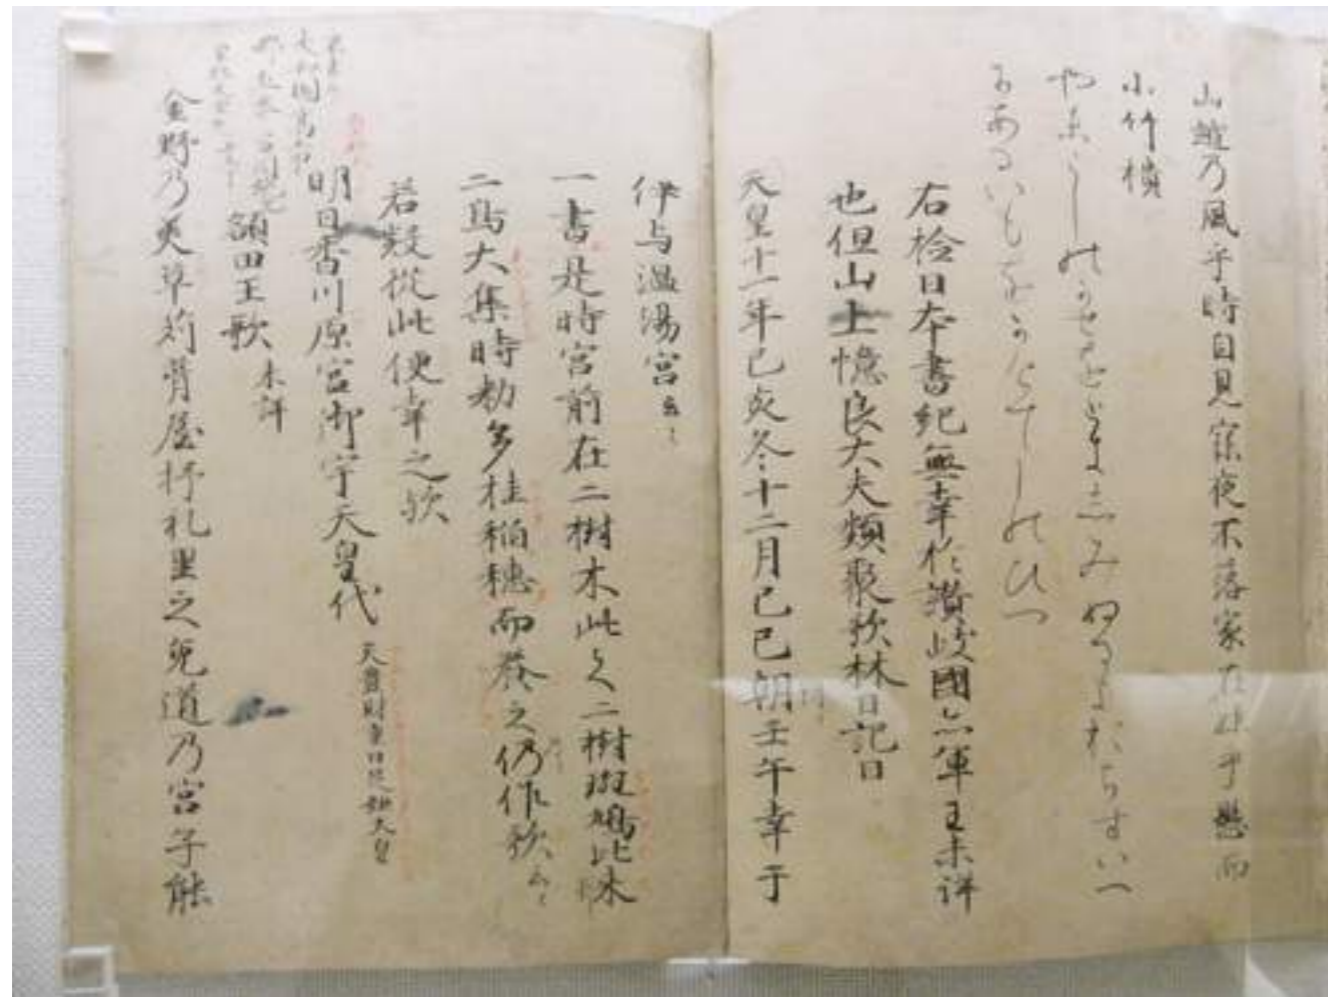 山越乃風乎時自見寐夜不落家在妹乎懸而
小竹櫃
やまこしのかせをときしみぬるよおちすいへ
にあるいもをかけてしのひつ
右檢日本書紀無幸於讃岐國亦軍王未詳
也但山上憶良大夫類聚歌林曰記曰
天皇十一年己亥冬十二月己巳朔壬午幸于
伊与温湯宮云々
一書是時宮前在二樹木此之二樹斑鳩比米
二鳥大集時勅多挂稲穂而養之仍作歌云々
若疑從此便幸之歟
明日香川原宮御宇天皇代 天豊財重日足姫天皇
額田王歌 未詳
金野乃美草苅葺屋杼礼里之兎道乃宮子能